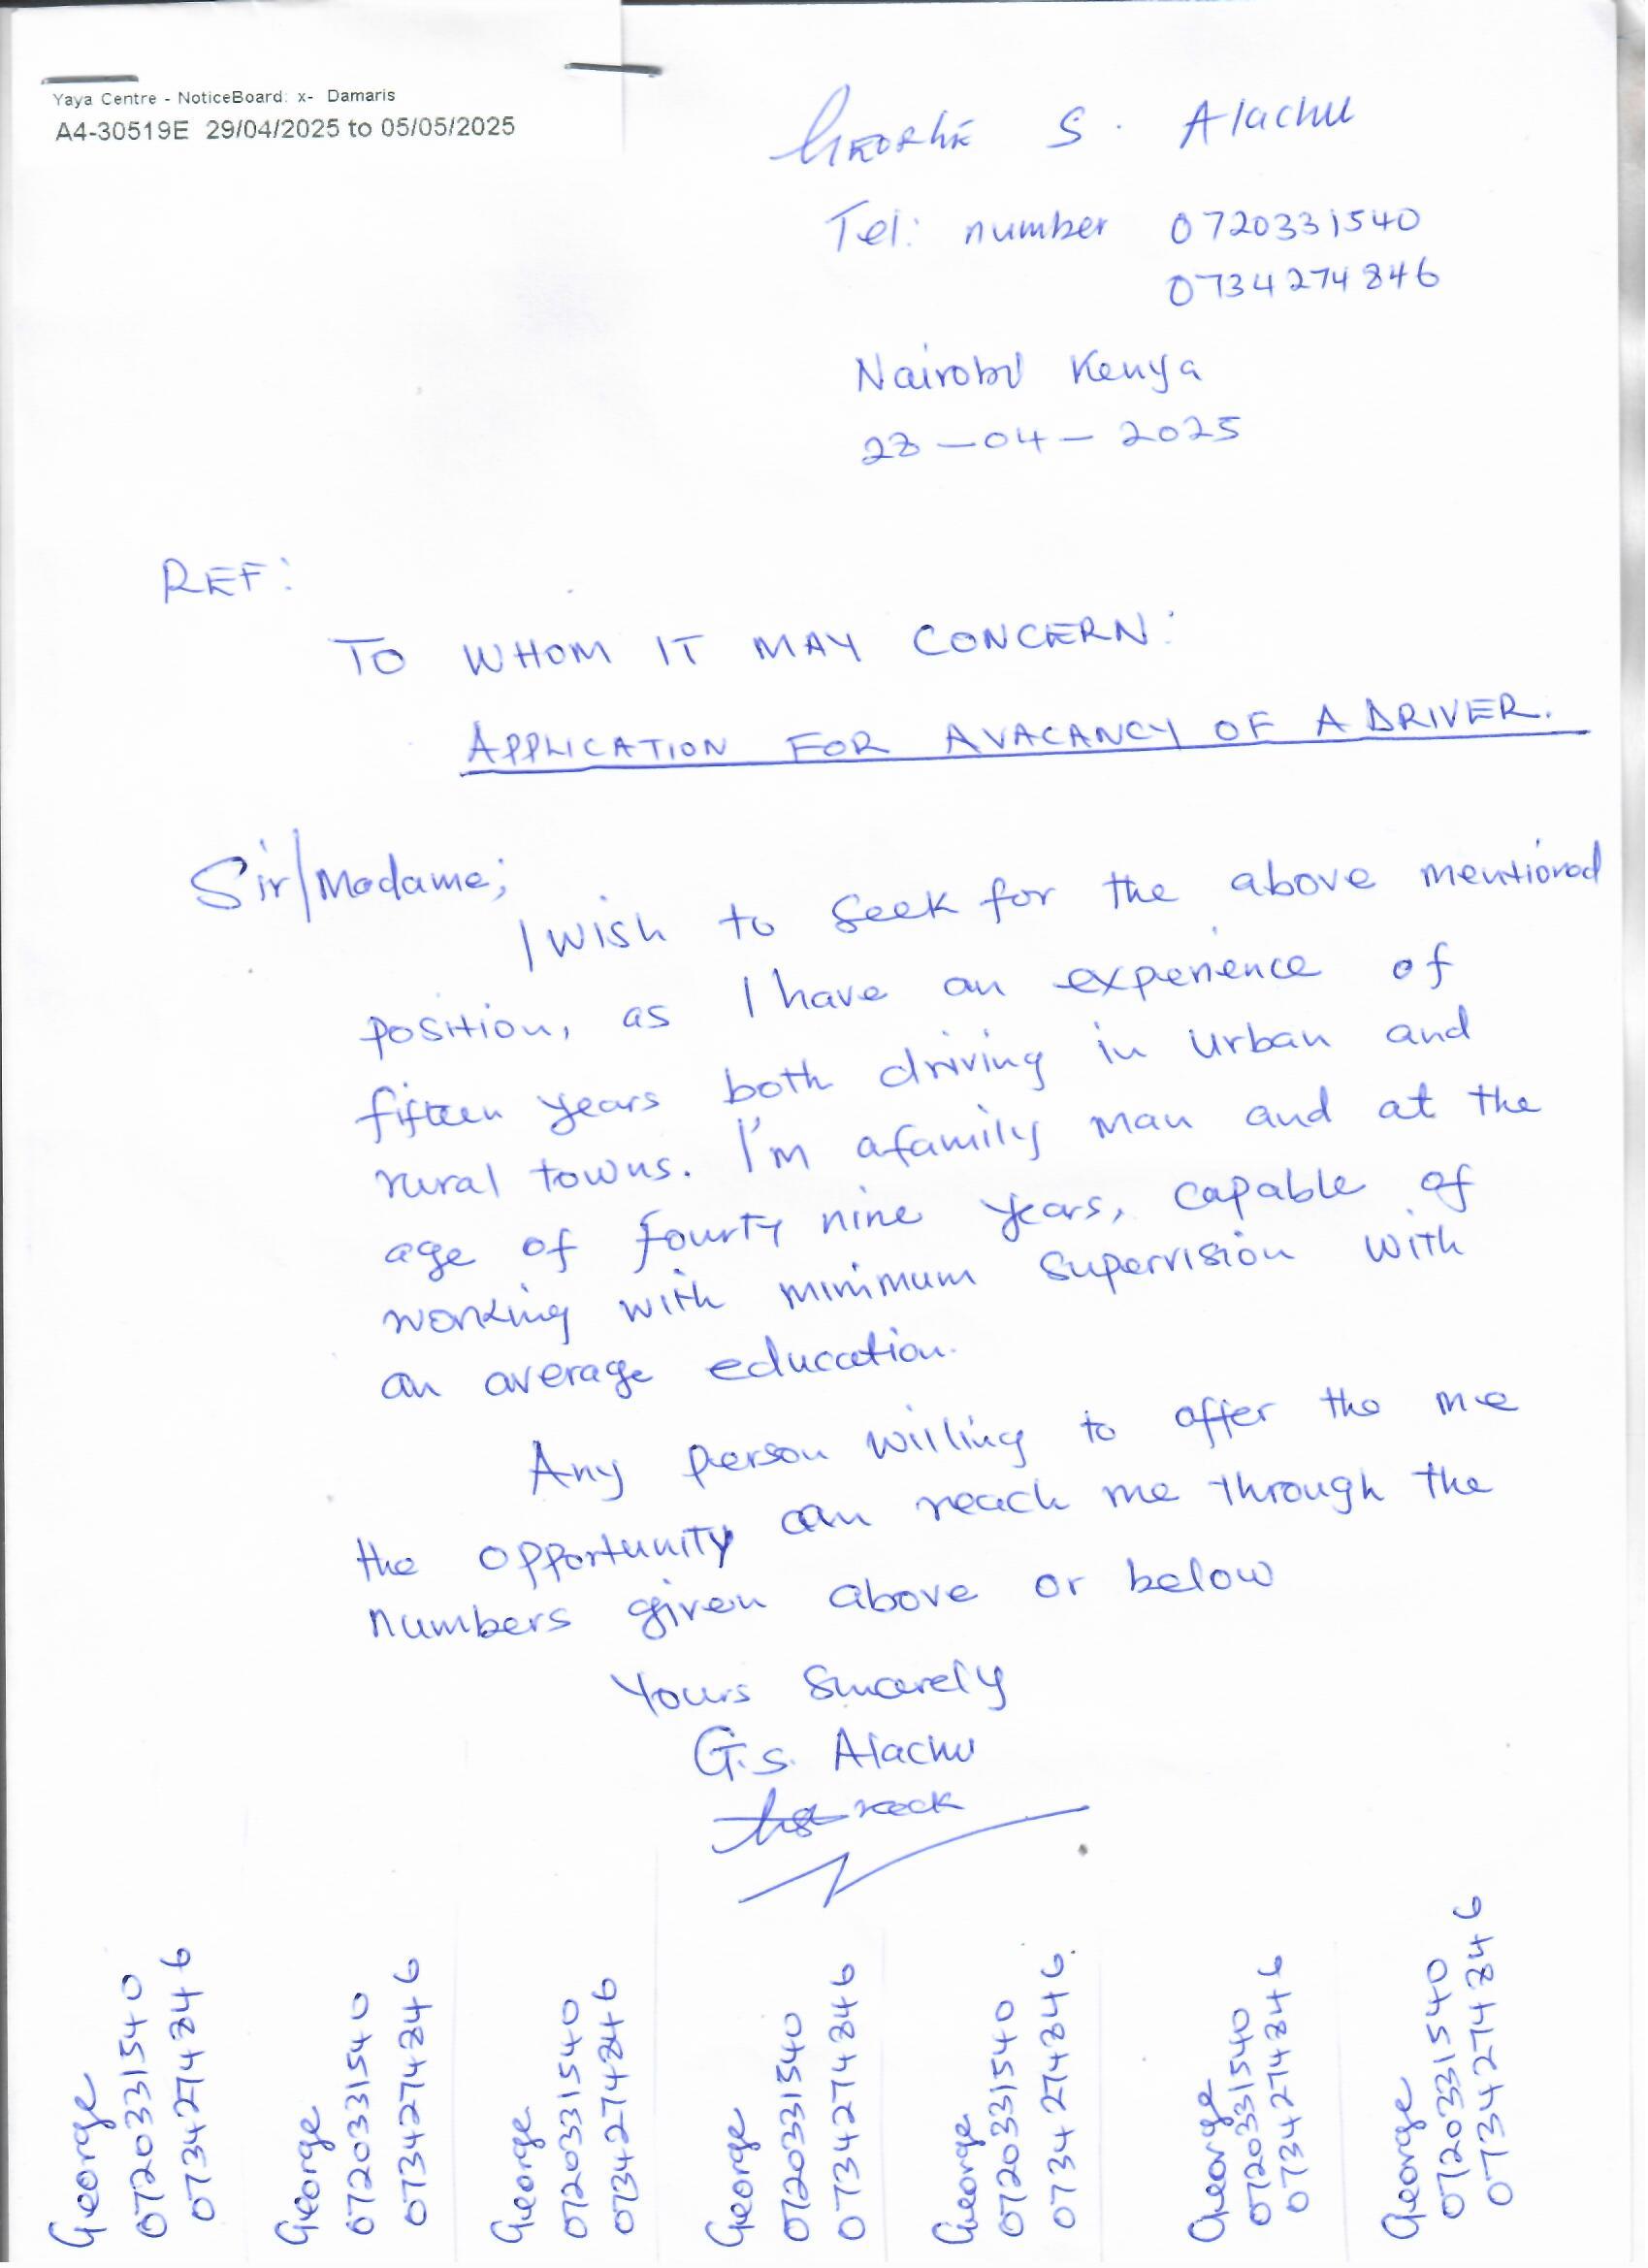 Yaya Centre - NoticeBoard: x- Damaris
A4-30519E 29/04/2025 to 05/05/2025
GEORGE S. Alachu
Tel: number 0720331540
0734274846
Nairobi Kenya
28-04-2025
REF:
TO WHOM IT MAY CONCERN:
APPLICATION FOR AVACANCY OF A DRIVER.
Sir/Madame;
I wish to seek for the above mentioned
position, as I have an experience of
fifteen years both driving in urban and
rural towns. I'm afamily man and at the
age of fourty nine years, capable of
working with minimum supervision with
an average education.
Any person willing to offer the me
the opportunity can reach me through the
numbers given above or below
Yours Sincerely
G.S. Alachu
George
0720331540
0734274846
George
0720331540
0734274846
George
0720331540
0734274846
George
0720331540
0734274846
George
0720331540
0734274846
George
0720331540
0734274846
George
0720331540
0734274846